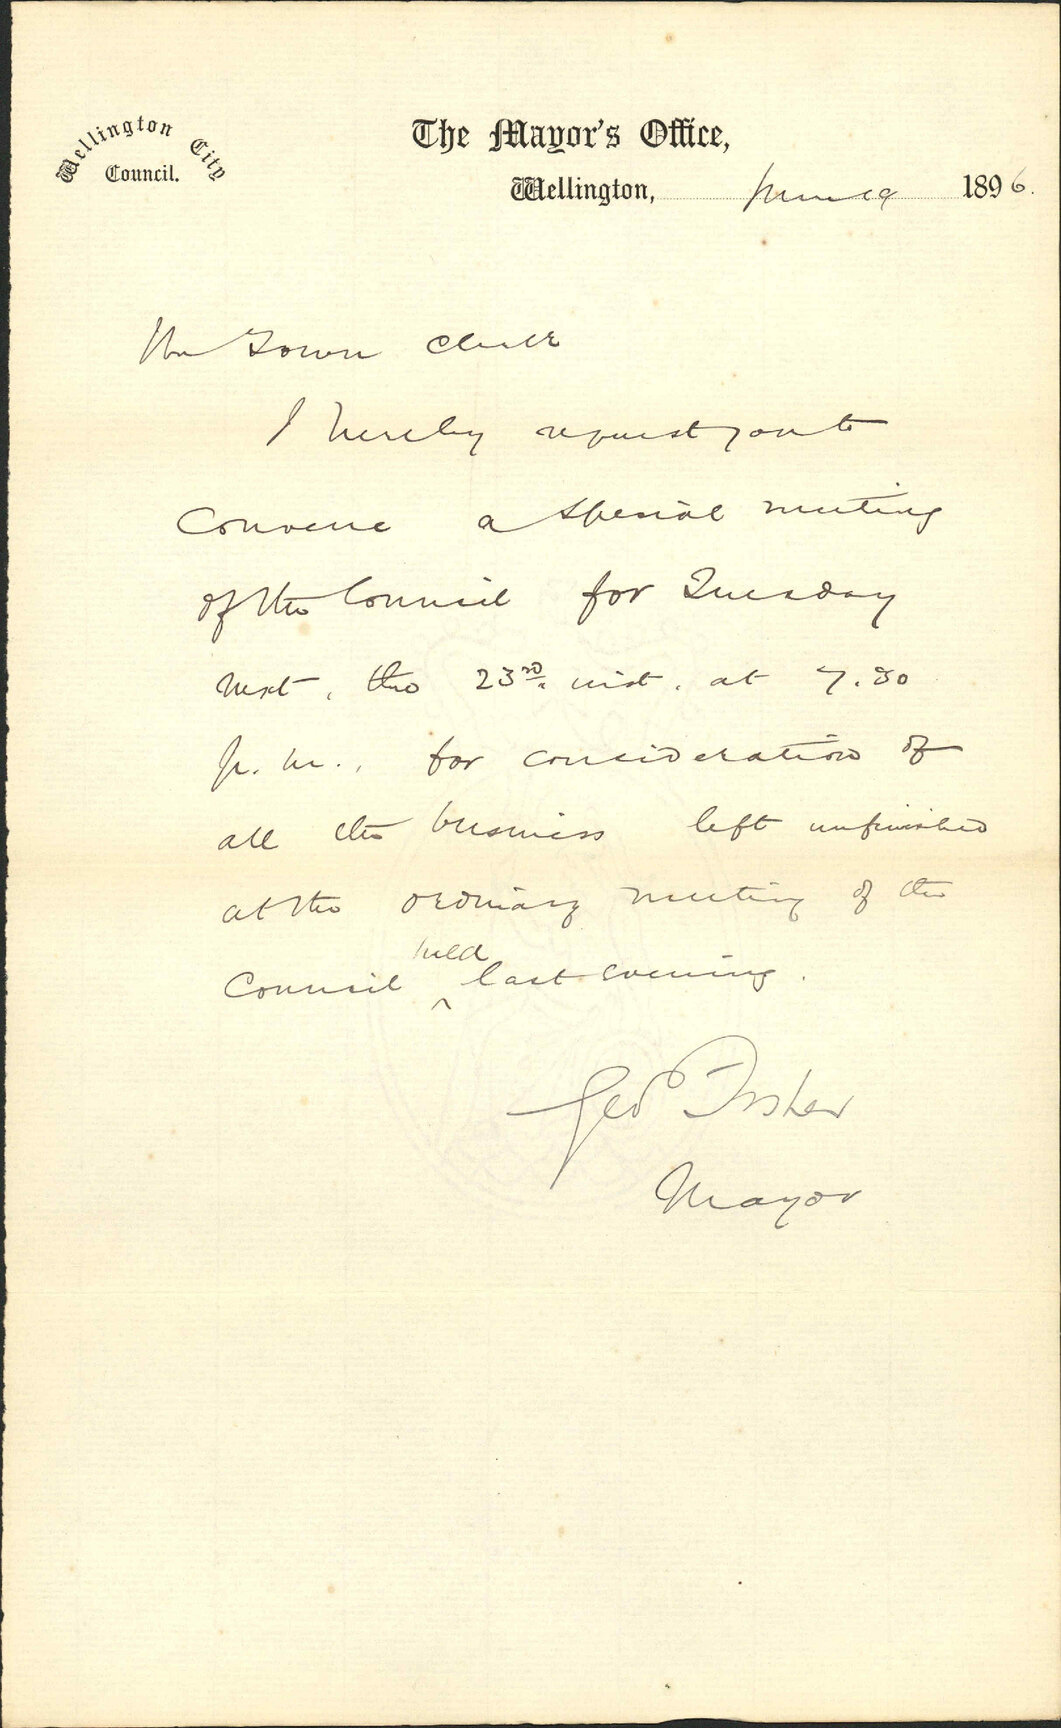 Wellington City
Council.
The Mayor's Office,
Wellington, June 19 1896.
The Town Clerk
I hereby request you to
convene a special meeting
of the Council for Tuesday
next, the 23rd. inst. at 7.30
p.m., for consideration of
all the business left unfinished
at the ordinary meeting of the
held
Council ^ last evening.
Geo Fisher
Mayor